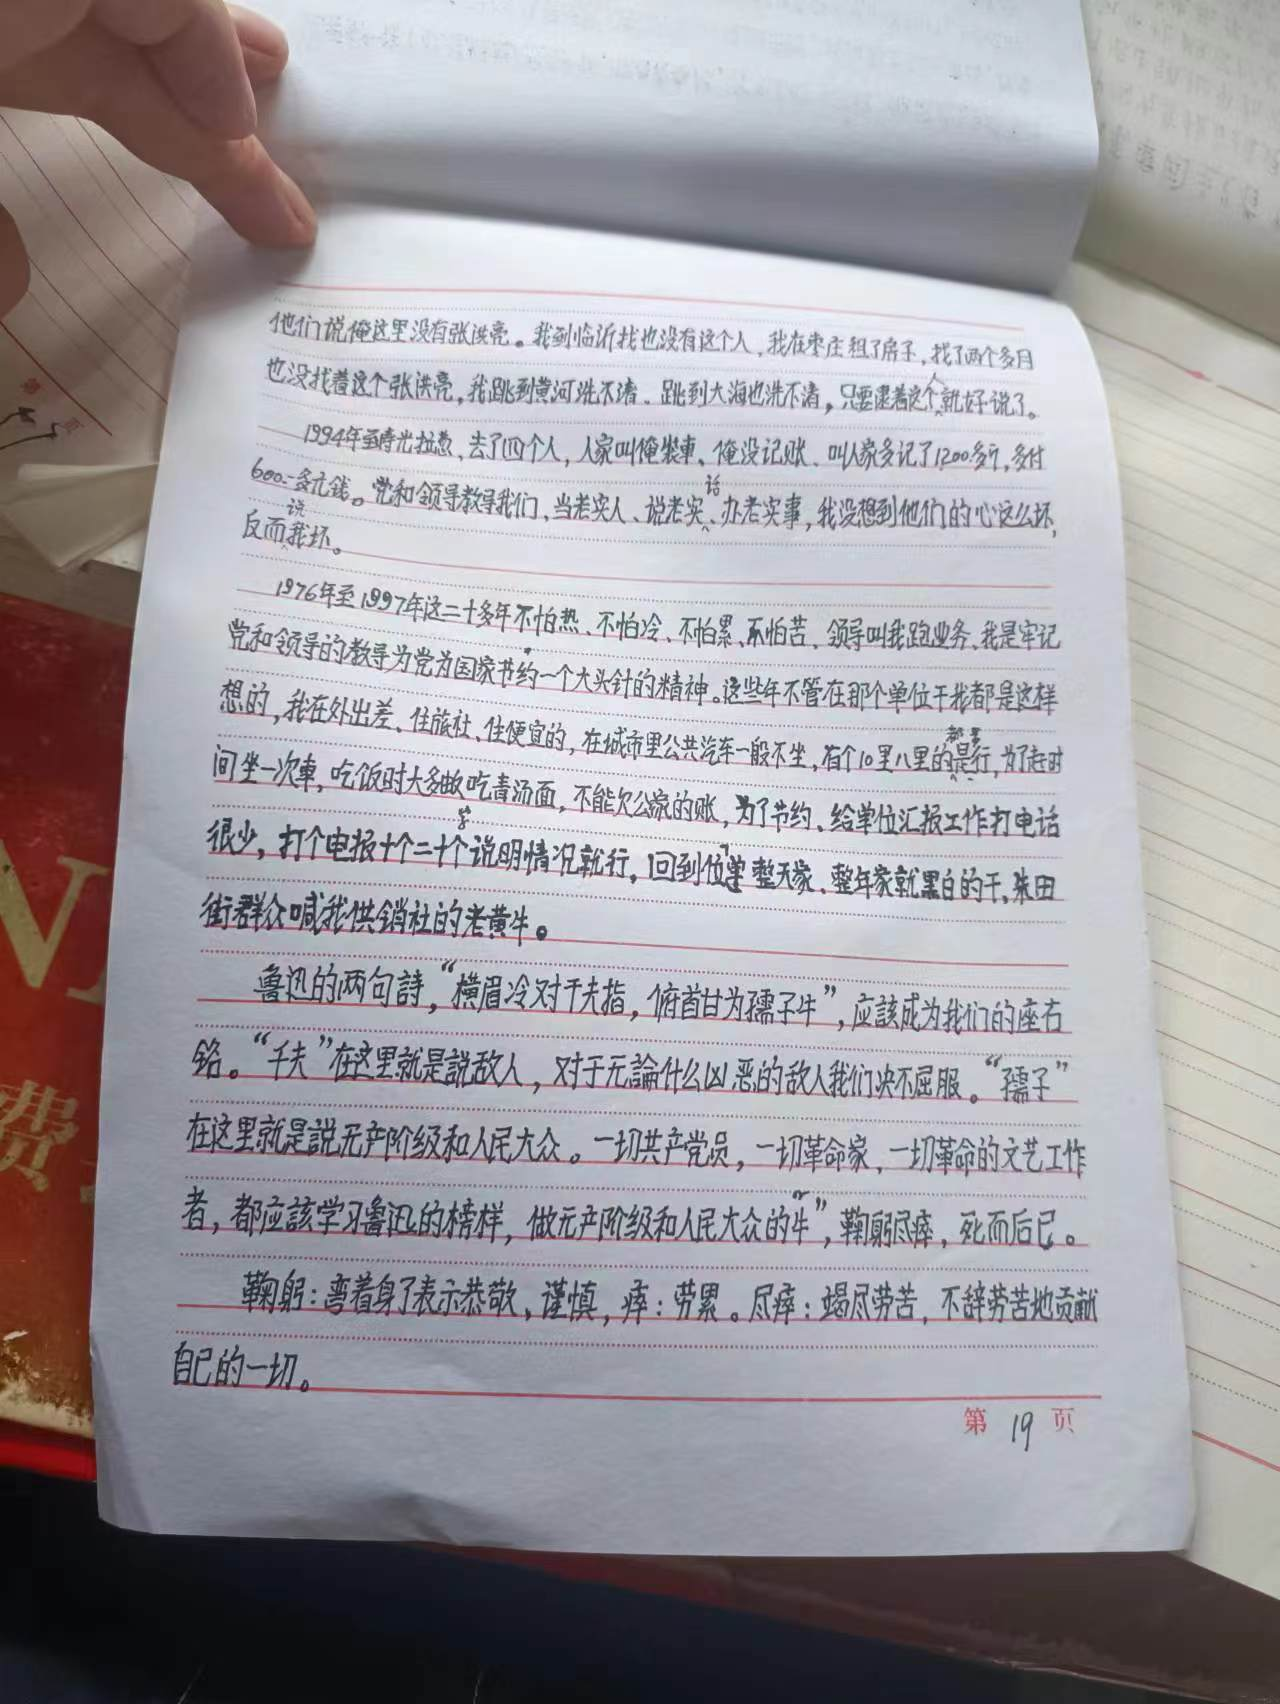 他们说俺这里没有张洪亮。我到临沂找也没有这个人，我在枣庄租了房子，找了两个多月
也没找着这个张洪亮，我跳到黄河洗不清、跳到大海也洗不清，只要逮着这个人就好说了。
1994年至寿光拉葱、去了四个人，人家叫俺装車、俺没记账、叫人家多记了1200多斤，多付
600-多元钱。党和领导教导我们、当老实人、说老实话、办老实事，我没想到他们的心这么坏，
反而说我坏。
1976年至1997年这二十多年不怕热、不怕冷、不怕累、不怕苦、领导叫我跑业务、我是牢记
党和领导的教导为党为国家节约一个大头针的精神。这些年不管在那个单位干我都是这样
想的，我在外出差、住旅社、住便宜的，在城市里公共汽车一般不坐，有个10里八里的都是步行，为了赶时
间坐一次車，吃饭时大多数吃青汤面，不能欠公家的账，为了节约、给单位汇报工作打电话
很少，打个电报十个二十个字说明情况就行，回到单位整天家、整年家就黑白的干，朱田
街群众喊我供销社的老黄牛。
鲁迅的两句詩，“横眉冷对千夫指，俯首甘为孺子牛”，应該成为我们的座右
铭。“千夫”在这里就是説敌人，对于无論什么凶恶的敌人我们决不屈服。“孺子”
在这里就是説无产阶级和人民大众。一切共产党员，一切革命家，一切革命的文艺工作
者，都应該学习鲁迅的榜样，做无产阶级和人民大众的“牛”，鞠躬尽瘁，死而后已。
鞠躬：弯着身子表示恭敬、谨慎，瘁：劳累。尽瘁：竭尽劳苦，不辞劳苦地贡献
自己的一切。
第 19 页